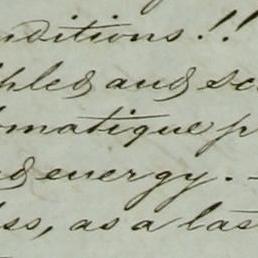 nditions!!
and sc
omatique p
energy. -
ss, as a las